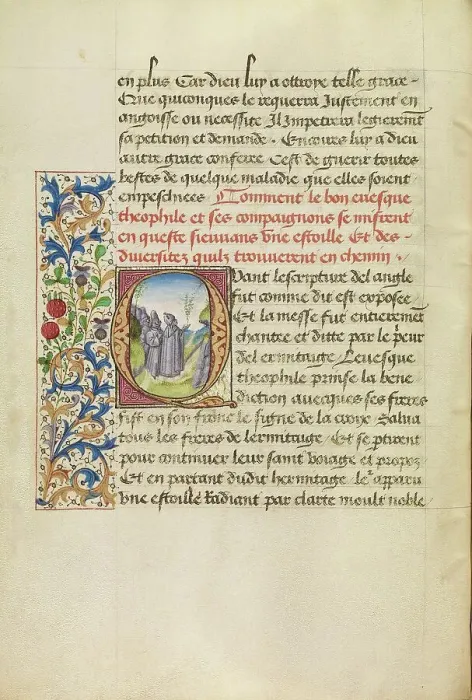 en plus Car dieu luy a ottroye telle grace
Que quiconques le requerra Justement en
angoisse ou necessite Il Impetrera legierement
sa petition et demande . Encores luy a dieu
autre grace conferee Cest de guerir toutes
bestes de quelque maladie que elles soient
empeschiees Comment le bon euesque
theophile et ses compaignons se misrent
en queste sieuuans vne estoille Et des
diuersitez quilz trouuerent en chemin .
Quant lescripture del angle
fut comme dit est exposee
Et la messe fut entierement
chantee et ditte par le p̄eur
del ermitaige Leuesque
theophile prinse la bene
diction auecques ses freres
fist en son fronc le signe de la croix Salua
tous les freres de lermitaige Et se ptirent
pour continuer leur saint voiage et propoz
Et en partant dudit hermitaige le² apparu
vne estoille Radiant par clarte moult noble